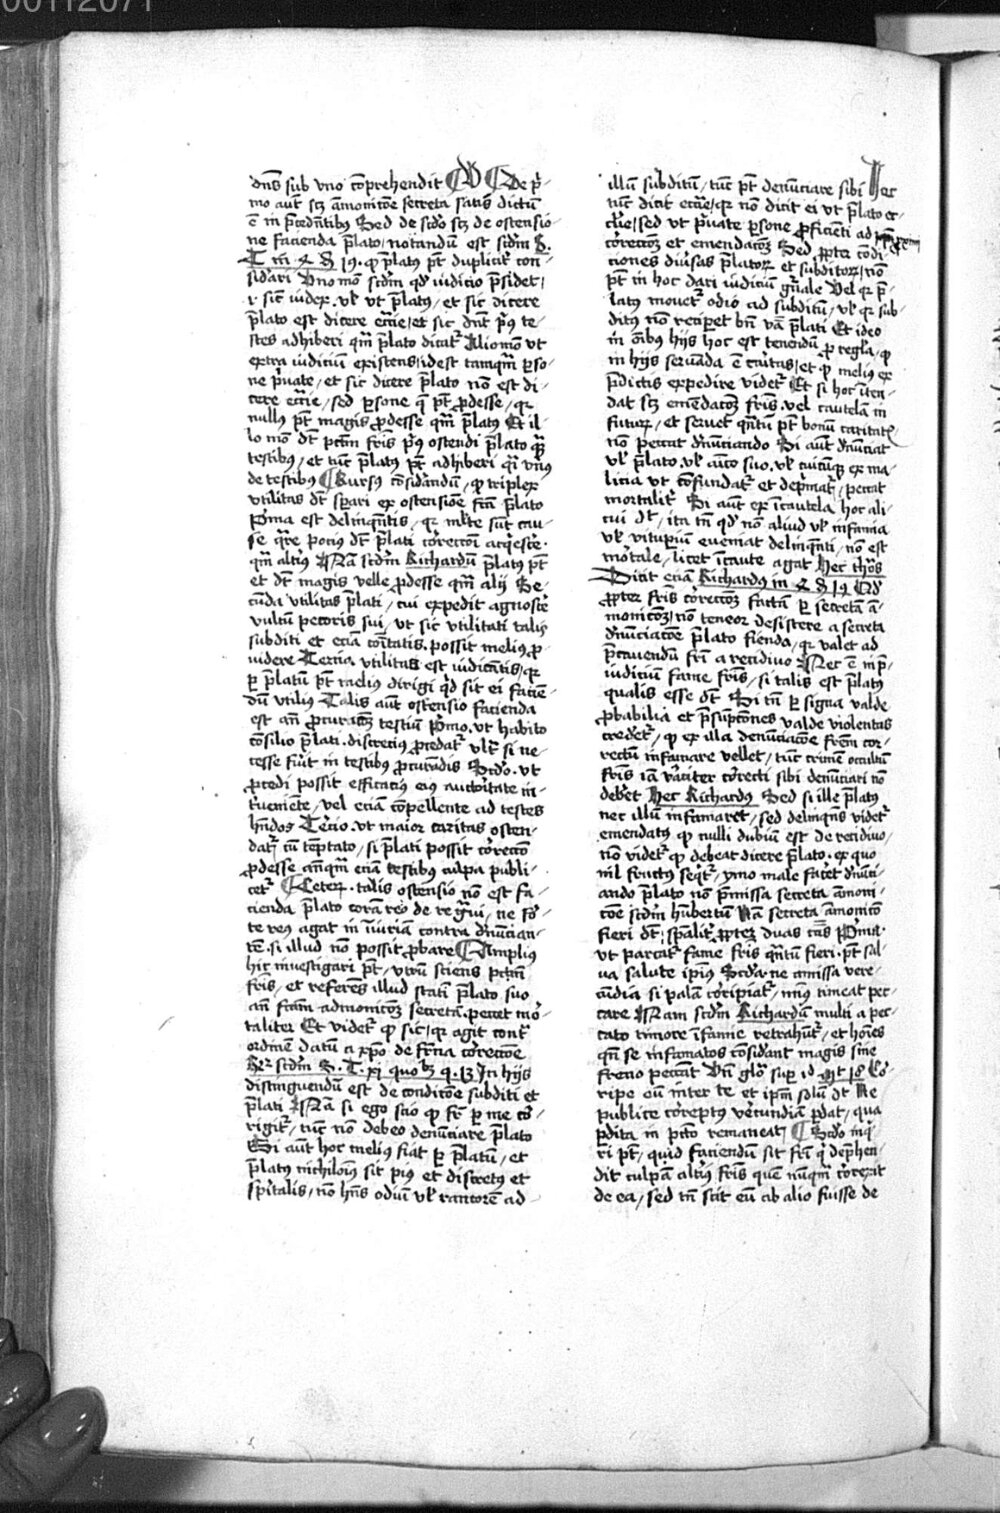 00112071
dn̄s sub vno cōprehendit D De p̄-
mo aut̄ scȝ āmonicōe secreta satis dictū
ē in p̄cedn̄tibus Sed de scd̄o scȝ de ostensio-
ne facienda p̄lato / notandū est scd̄m S.
sid'ari Vno mō scd̄m qd' iudicio p̄sidet /
r sic iudex. vl' ut p̄latus, et sic dicere
p̄lato est dicere ecc̄ie, et sic dn̄t p̄us te-
stes adhiberi qm̄ p̄lato dicat' Alio mō ut
extra iudiciū existens, idest tamqm̄ p̄so-
ne p̄uate, et sic dicere p̄lato nō est di-
cere ecc̄ie, sed p̄sone q̄ pt̄ prodesse, qr
nullus pt̄ magis prodesse qm̄ p̄latus Et il-
lo mō dt̄ pctm̄ fris p̄us ostendi p̄lato qm̄
testibus, et tūc p̄latus pt̄ adhiberi qi vnus
de testibus Rursus cōsid'andū, qp triplex
vtilitas dt̄ spari ex ostensiōe fcā p̄lato
P'ma est delinqn̄tis, qr ml'te sūt cau-
se qre pocius dt̄ p̄lati correccōi acqiesce'
qm̄ alt'ius Nā scd̄m Richardū p̄latus pt̄
et dt̄ magis velle prodesse qm̄ alij Se-
cūda vtilitas p̄lati, cui expedit agnosce'
vultū pecoris sui, ut sic vtilitati talis
subditi et eciā cōitatis. possit melius pro-
uidere Tercia vtilitas est iudicātis, qr
p p̄latū pt̄ melius dirigi qd' sit ei facien-
dū vtilius Talis aut̄ ostensio facienda
est an̄ procuracōȝ testiū P'mo. ut habito
cōsilio p̄lati. discrecius procedat' vlt' si ne-
cesse fu'it in testibus procurādis Scd̄o. ut
procedi possit efficacius eius auctoritate in-
t'ueniente, vel eciā cōpellente ad testes
hn̄dos Tercio. ut maior caritas osten-
dat' cū tēptato, si p̄lati possit correccō
prodesse anq̄m eciā testibus culpa publi-
cet' Ceter. talis ostensio nō est fa-
cienda p̄lato corā reo de re g'ui, ne for-
te reus agat in iniuriā contra dn̄uncian-
tē. si illud nō possit probare Amplius
hic inuestigari pt̄, vtrū sciens pctm̄
fris, et referēs illud statī p̄lato suo
an̄ fcām admonicōȝ secretā. peccet mor-
taliter Et videt' qp sic, qr agit contr'
ordinē datū a xpo de fr̄na correccōe
Ber scd̄m S. T. xi quolȝ q. 13 In hijs
distinguendū est de condicōe subditi et
p̄lati Nā si ego scio qp fr̄ p me cor-
rigit', tūc nō debeo denūciare p̄lato
Si aut̄ hoc melius fiat p p̄latū, et
p̄latus nichilo͞ius sit pius et discretus et
sp̄italis, nō hn̄s odiū vl' rancorē ad-
illū subditū, tūc pt̄ denūciare sibi Nec
tūc dicit ecc̄ie, qr nō dicit ei ut p̄lato ec-
cl̄ie, sed ut p̄uate p̄sone proficiēti ad
correccōȝ et emendacōȝ Sed propter condi-
ciones diu'sas p̄latorum et subditorum, nō
pt̄ in hoc dari iudiciū gn̄ale Vel qr p̄-
latus mouet' odio ad subditū, vl' qr sub-
ditus nō recip'et bn̄ v'a p̄lati Et ideo
in oībus hijs hoc est tenendū pro regla, qp
in hijs seruāda ē caritas, et qp melius ex
p̄dictis expedire videt' Et si hoc iten-
dat scȝ emēdacōȝ fris. vel cautelā in
futur, et seruet qn̄tū pt̄ bonū caritatis
nō peccat dn̄unciando Si aut̄ dn̄unciat
vl' p̄lato. vl' amico suo. vl' cuicūq ex ma-
licia ut confundat' et dep'mat', peccat
mortalit' Si aut̄ ex īcautela hoc ali-
cui dt̄, ita tn̄ qd' nō aliud vl' infamia
vl' vitupiū eueniat delinqn̄ti, nō est
mortale, licet īcaute agat Hec Thos
Dicit eciā Richardus in 4 d 19
Propter fris correccōȝ factā p secretā ā-
monicōȝ nō teneor desistere a secreta
dn̄unciacōe p̄lato fienda, qr valet ad
p̄cauendū fri a recidiuo Nec ē in p̄-
iudiciū fame fris, si talis est p̄latus
qualis esse dt̄ Si tn̄ p signa valde
probabilia et p̄sumpcōnes valde violentas
crederet', qp ex illa denūciacōe frem cor-
rectū infamare vellet, tūc crimen occultū
fris iā v'aciter correcti sibi denūciari nō
debet Hec Richardus Sed si ille p̄latus
nec illū infamaret, sed delinqns videt'
emendatus qp nulli dubiū est de recidiuo,
nō videt' qp debeat dicere p̄lato. ex quo
nil fructus seqr̄et', ymo male facet dn̄unci-
ando p̄lato nō p̄missa secreta āmoni-
cōe scd̄m hūbertū Nā secreta āmonicō
fieri dt̄, sp̄alit' propter duas cās P'ma.
ut parcat' fame fris qn̄tū fieri. pt̄ sal-
ua salute ip̄ius Scd̄a. ne amissa vere-
cūdia si palā corripiat', min' timeat pec-
care Nam scd̄m Richardū multi a pec-
cato timore ifamie retrahūt', et hoīes
qn̄ se infamatos consid'ant magis sine
freno peccāt Vn̄ glo sup id Mt 18 Cor-
ripe eū inter te et ip̄m solū dt̄ Ne
publice correptus v'ecundiā p̄dat, qua
p̄dita in pctō remaneat Scd̄o inqi-
ri pt̄, quid faciendū sit fri qi dep̄hen-
dit culpam alt'ius fris quē nūqm̄ correxit
de ea, sed tn̄ scit eū ab alio fuisse de